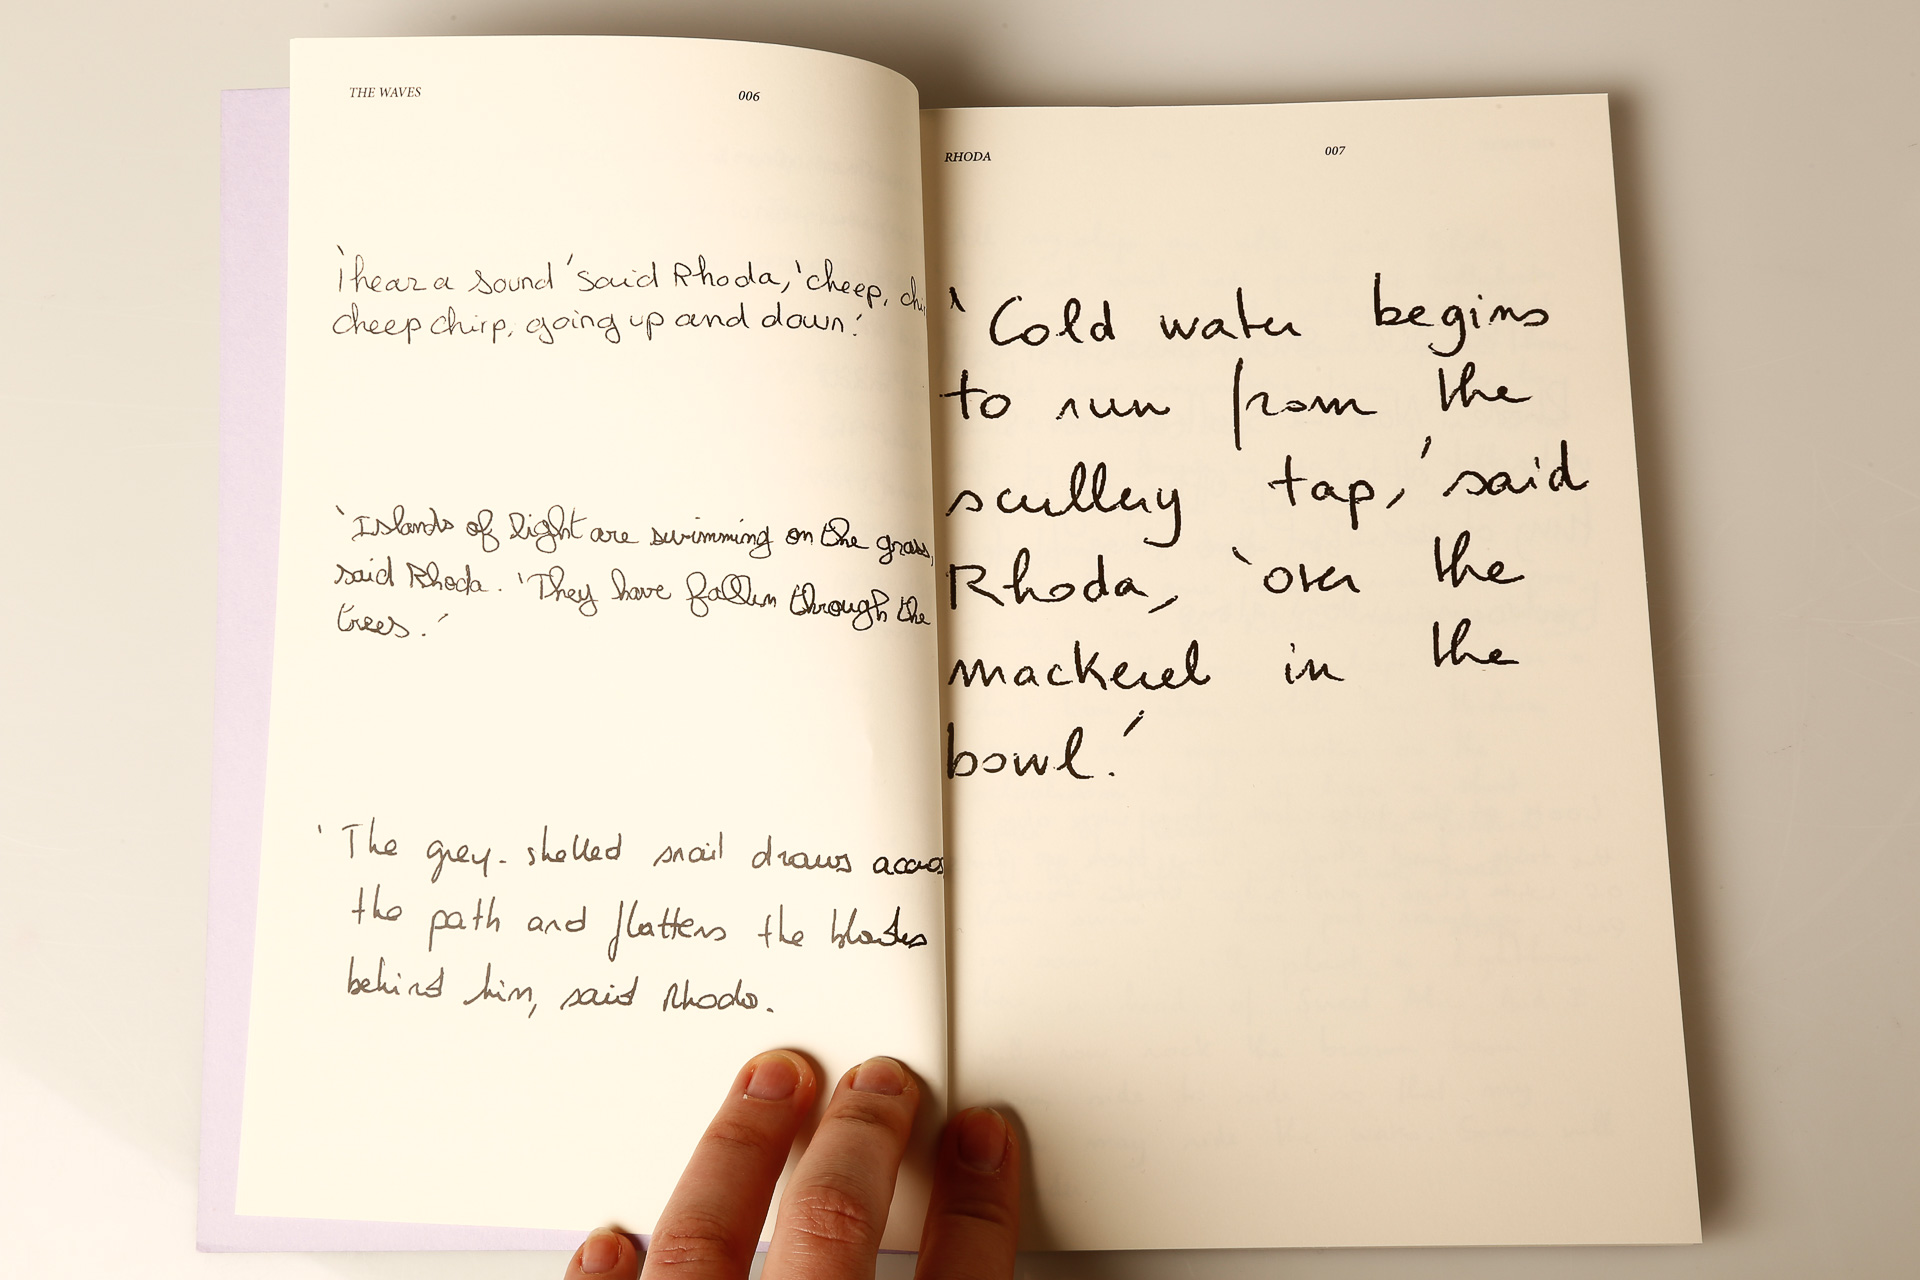 THE WAVES 006
'I hear a sound' said Rhoda, 'cheep,
cheep chirp, going up and down.'
'Islands of light are swimming on the grass,
said Rhoda. 'They have fallen through the
trees.'
'The grey-shelled snail draws across
the path and flattens the blades
behind him, said Rhoda.
RHODA 007
'Cold water begins
to run from the
scullery tap,' said
Rhoda, 'over the
mackerel in the
bowl.'